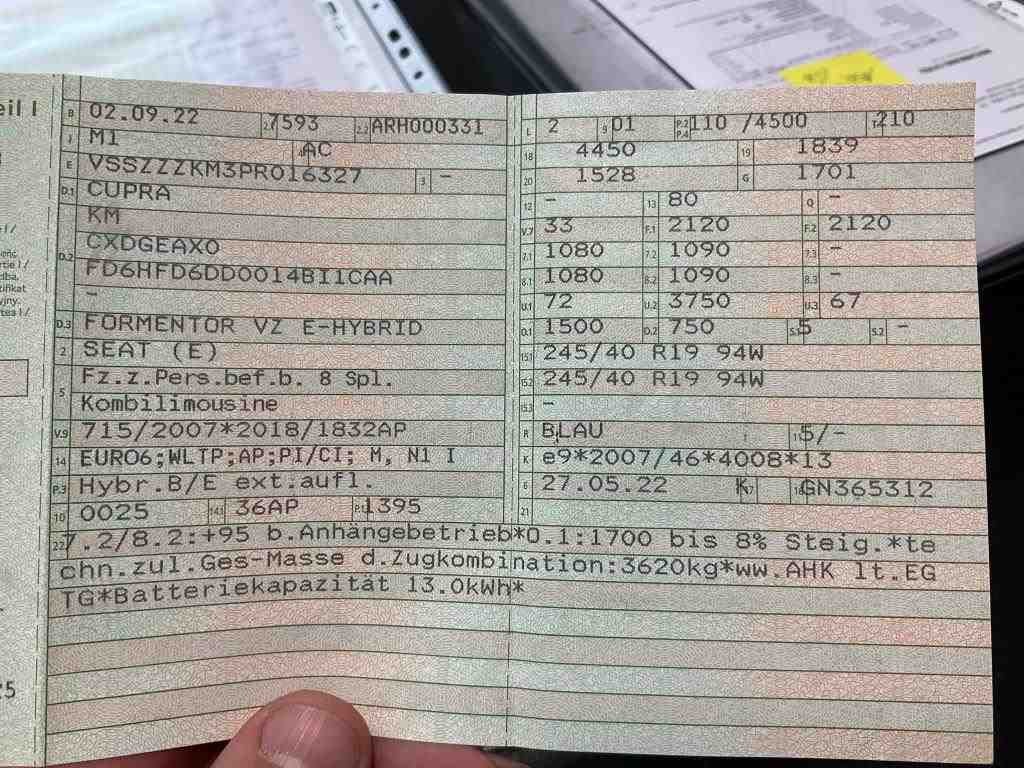 eil I
B 02.09.22 2.1 7593 2.2 ARH000331
J M1 4 AC
E VSSZZZKM3PR016327 3 -
D.1 CUPRA
KM
D.2 CXDGEAX0
FD6HFD6DD0014BI1CAA
-
D.3 FORMENTOR VZ E-HYBRID
2 SEAT (E)
5 Fz.z.Pers.bef.b. 8 Spl.
Kombilimousine
V.9 715/2007*2018/1832AP
14 EURO6;WLTP;AP;PI/CI; M, N1 I
P.3 Hybr.B/E ext.aufl.
10 0025 14.1 36AP P.1 1395
L 2 9 01 P.2 P.4 110 /4500 T 210
18 4450 19 1839
20 1528 G 1701
12 - 13 80 Q -
V.7 33 F.1 2120 F.2 2120
7.1 1080 7.2 1090 7.3 -
8.1 1080 8.2 1090 8.3 -
U.1 72 U.2 3750 U.3 67
O.1 1500 O.2 750 S.1 5 S.2 -
15.1 245/40 R19 94W
15.2 245/40 R19 94W
15.3 -
R BLAU 11 5/-
K e9*2007/46*4008*13
6 27.05.22 17 K 16 GN365312
21
22 7.2/8.2:+95 b.Anhängebetrieb*0.1:1700 bis 8% Steig.*te
chn.zul.Ges-Masse d.Zugkombination:3620kg*ww.AHK lt.EG
TG*Batteriekapazität 13.0kWh*